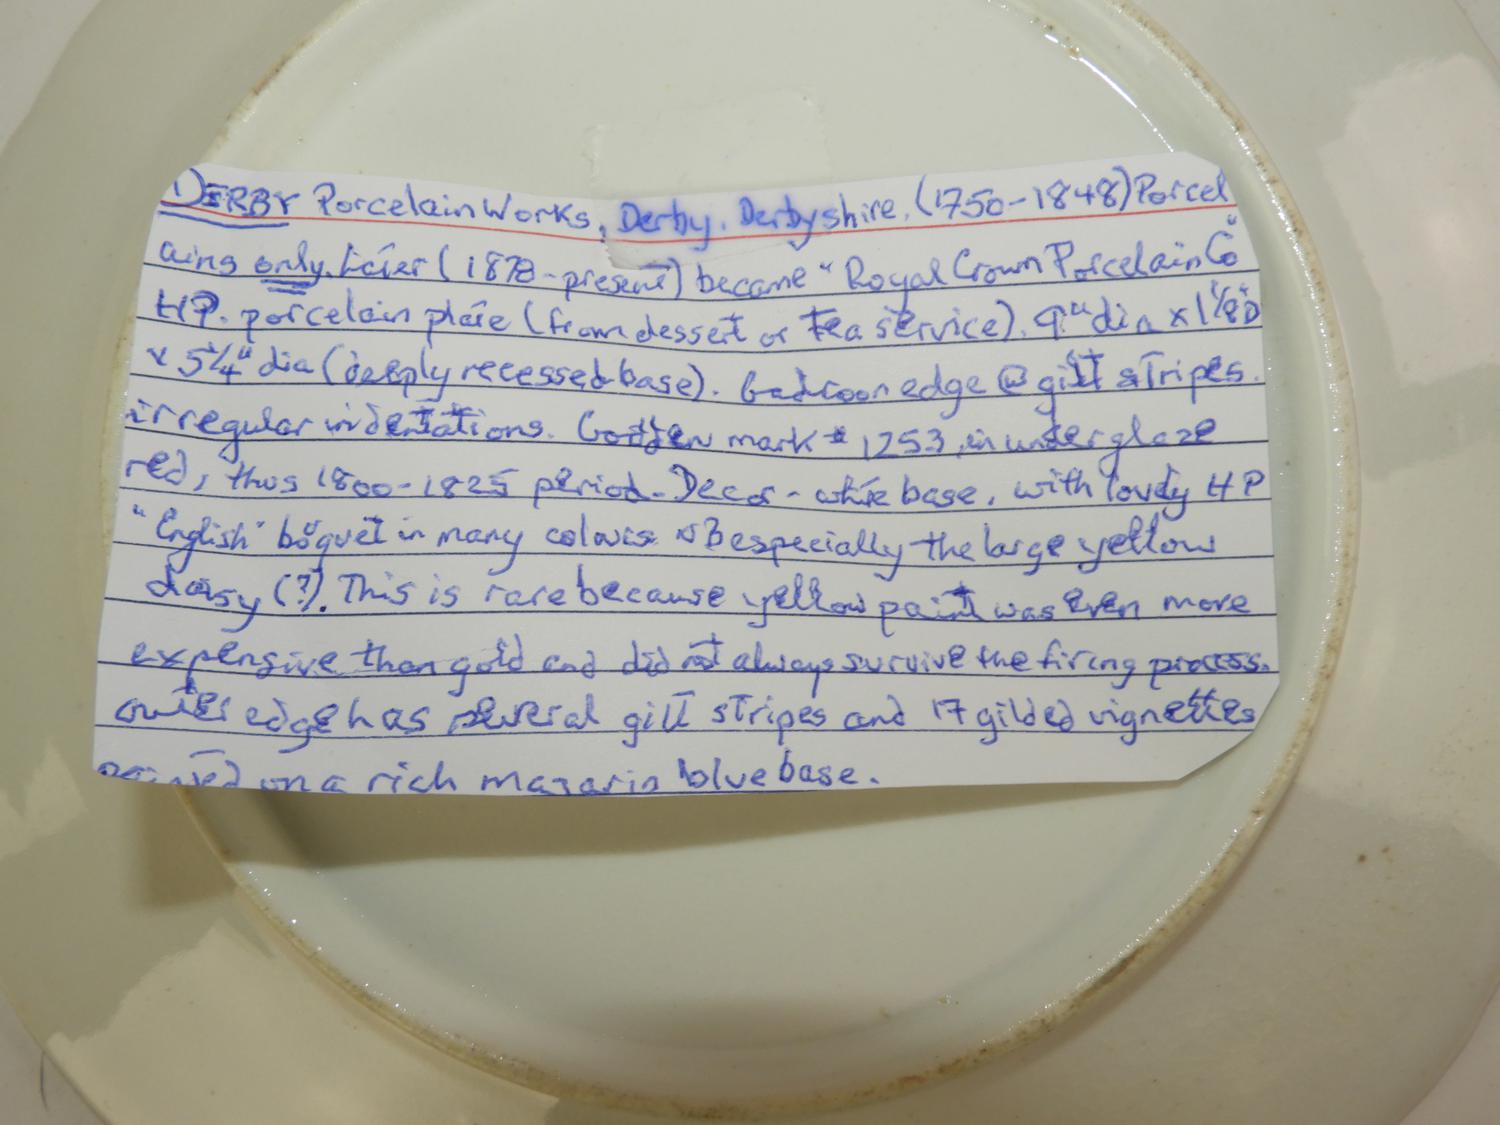 DERBY Porcelain Works, Derby. Derbyshire. (1750-1848) Porcel
ains only. Later (1878-present) became "Royal Crown Porcelain Co"
H.P. porcelain plate (from dessert or tea service). 9" dia x 1 1/8" D
x 5 1/4" dia (deeply recessed base). Gadroon edge @ gilt stripes.
irregular indentations. Godden mark # 1253, in underglaze
red, thus 1800-1825 period. Decor - white base, with lovely HP
"English" boquet in many colours NB especially the large yellow
daisy (?). This is rare because yellow paint was even more
expensive than gold and did not always survive the firing process.
outer edge has several gilt stripes and 17 gilded vignettes
painted on a rich mazarin blue base.